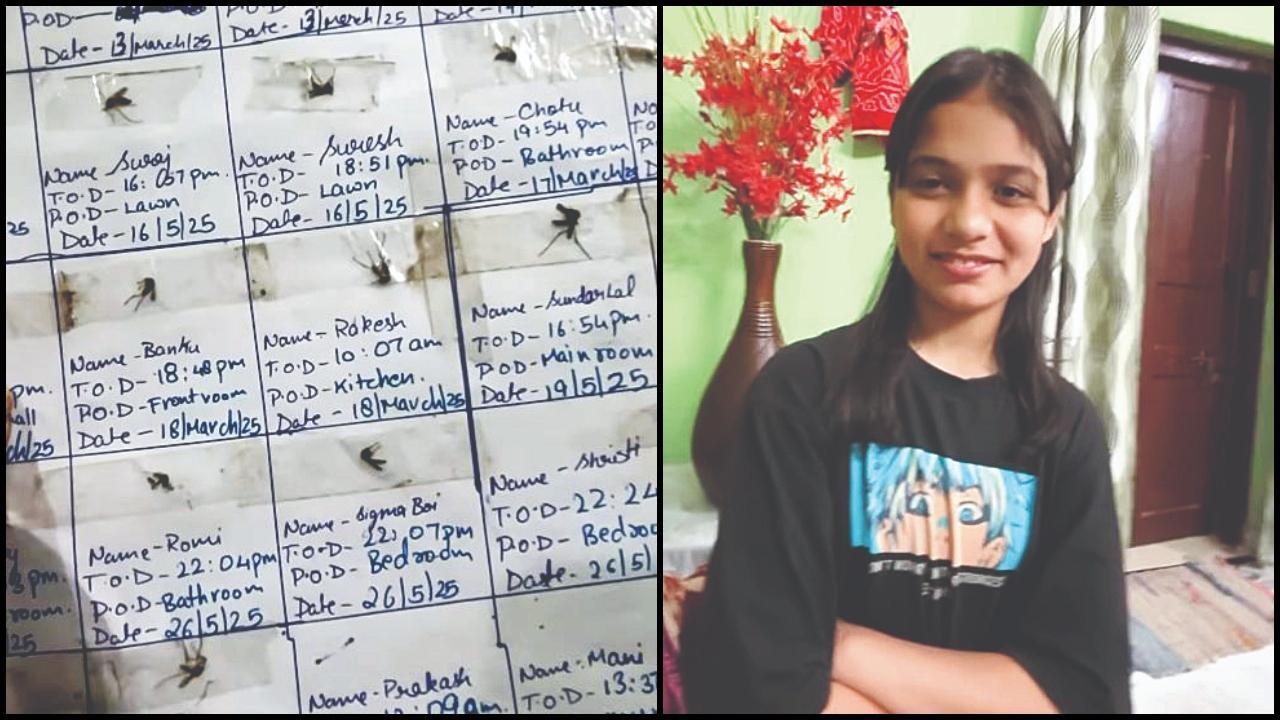 P.O.D-
Date- 13/March/25
P.O.D-
Date- 13/March/25
Name- Suraj
T.O.D- 16:057pm.
P.O.D- Lawn
Date- 16/5/25
Name- Suresh
T.O.D- 18:51 pm.
P.O.D- Lawn
Date- 16/5/25
Name- Chotu
T.O.D- 19:54 pm
P.O.D- Bathroom
Date- 17/March/25
25
Name-Banku
T.O.D- 18:48pm
P.O.D-Frontroom
Date- 18/March/25
Name- Rakesh
T.O.D- 10:07am
P.O.D-Kitchen.
Date- 18/March/25
Name- Sundarlal
T.O.D- 16:54pm.
P.O.D-Mainroom
Date-19/5/25
pm.
Name-Romi
T.O.D- 22:04pm
P.O.D-Bathroom
Date-26/5/25
Name- Sigma Boi
T.O.D- 22:07pm
P.O.D- Bedroom
Date- 26/5/25
Name- Shristi
T.O.D-22:24
P.O.D- Bedroo
Date- 26/5/
pm.
room.
25
Name-Prakash
:09am.
Name-Mani
T.O.D- 13:3